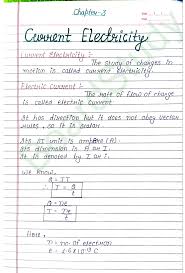 Chapter-3
Current Electricity
Current Electricity :-
The study of charges in
motion is called current electricity.
Electric Current :-
The rate of flow of charge
is called Electric Current
It has direction but it does not obey vector
rules, so it is scalar.
Its SI unit is ampere (A)
Its dimension is A or I
It is denoted by I or i.
We Know,
I = Q/t
Q = ne
I = ne/t
Here,
n = no. of electron
e = 1.6×10⁻¹⁹ C